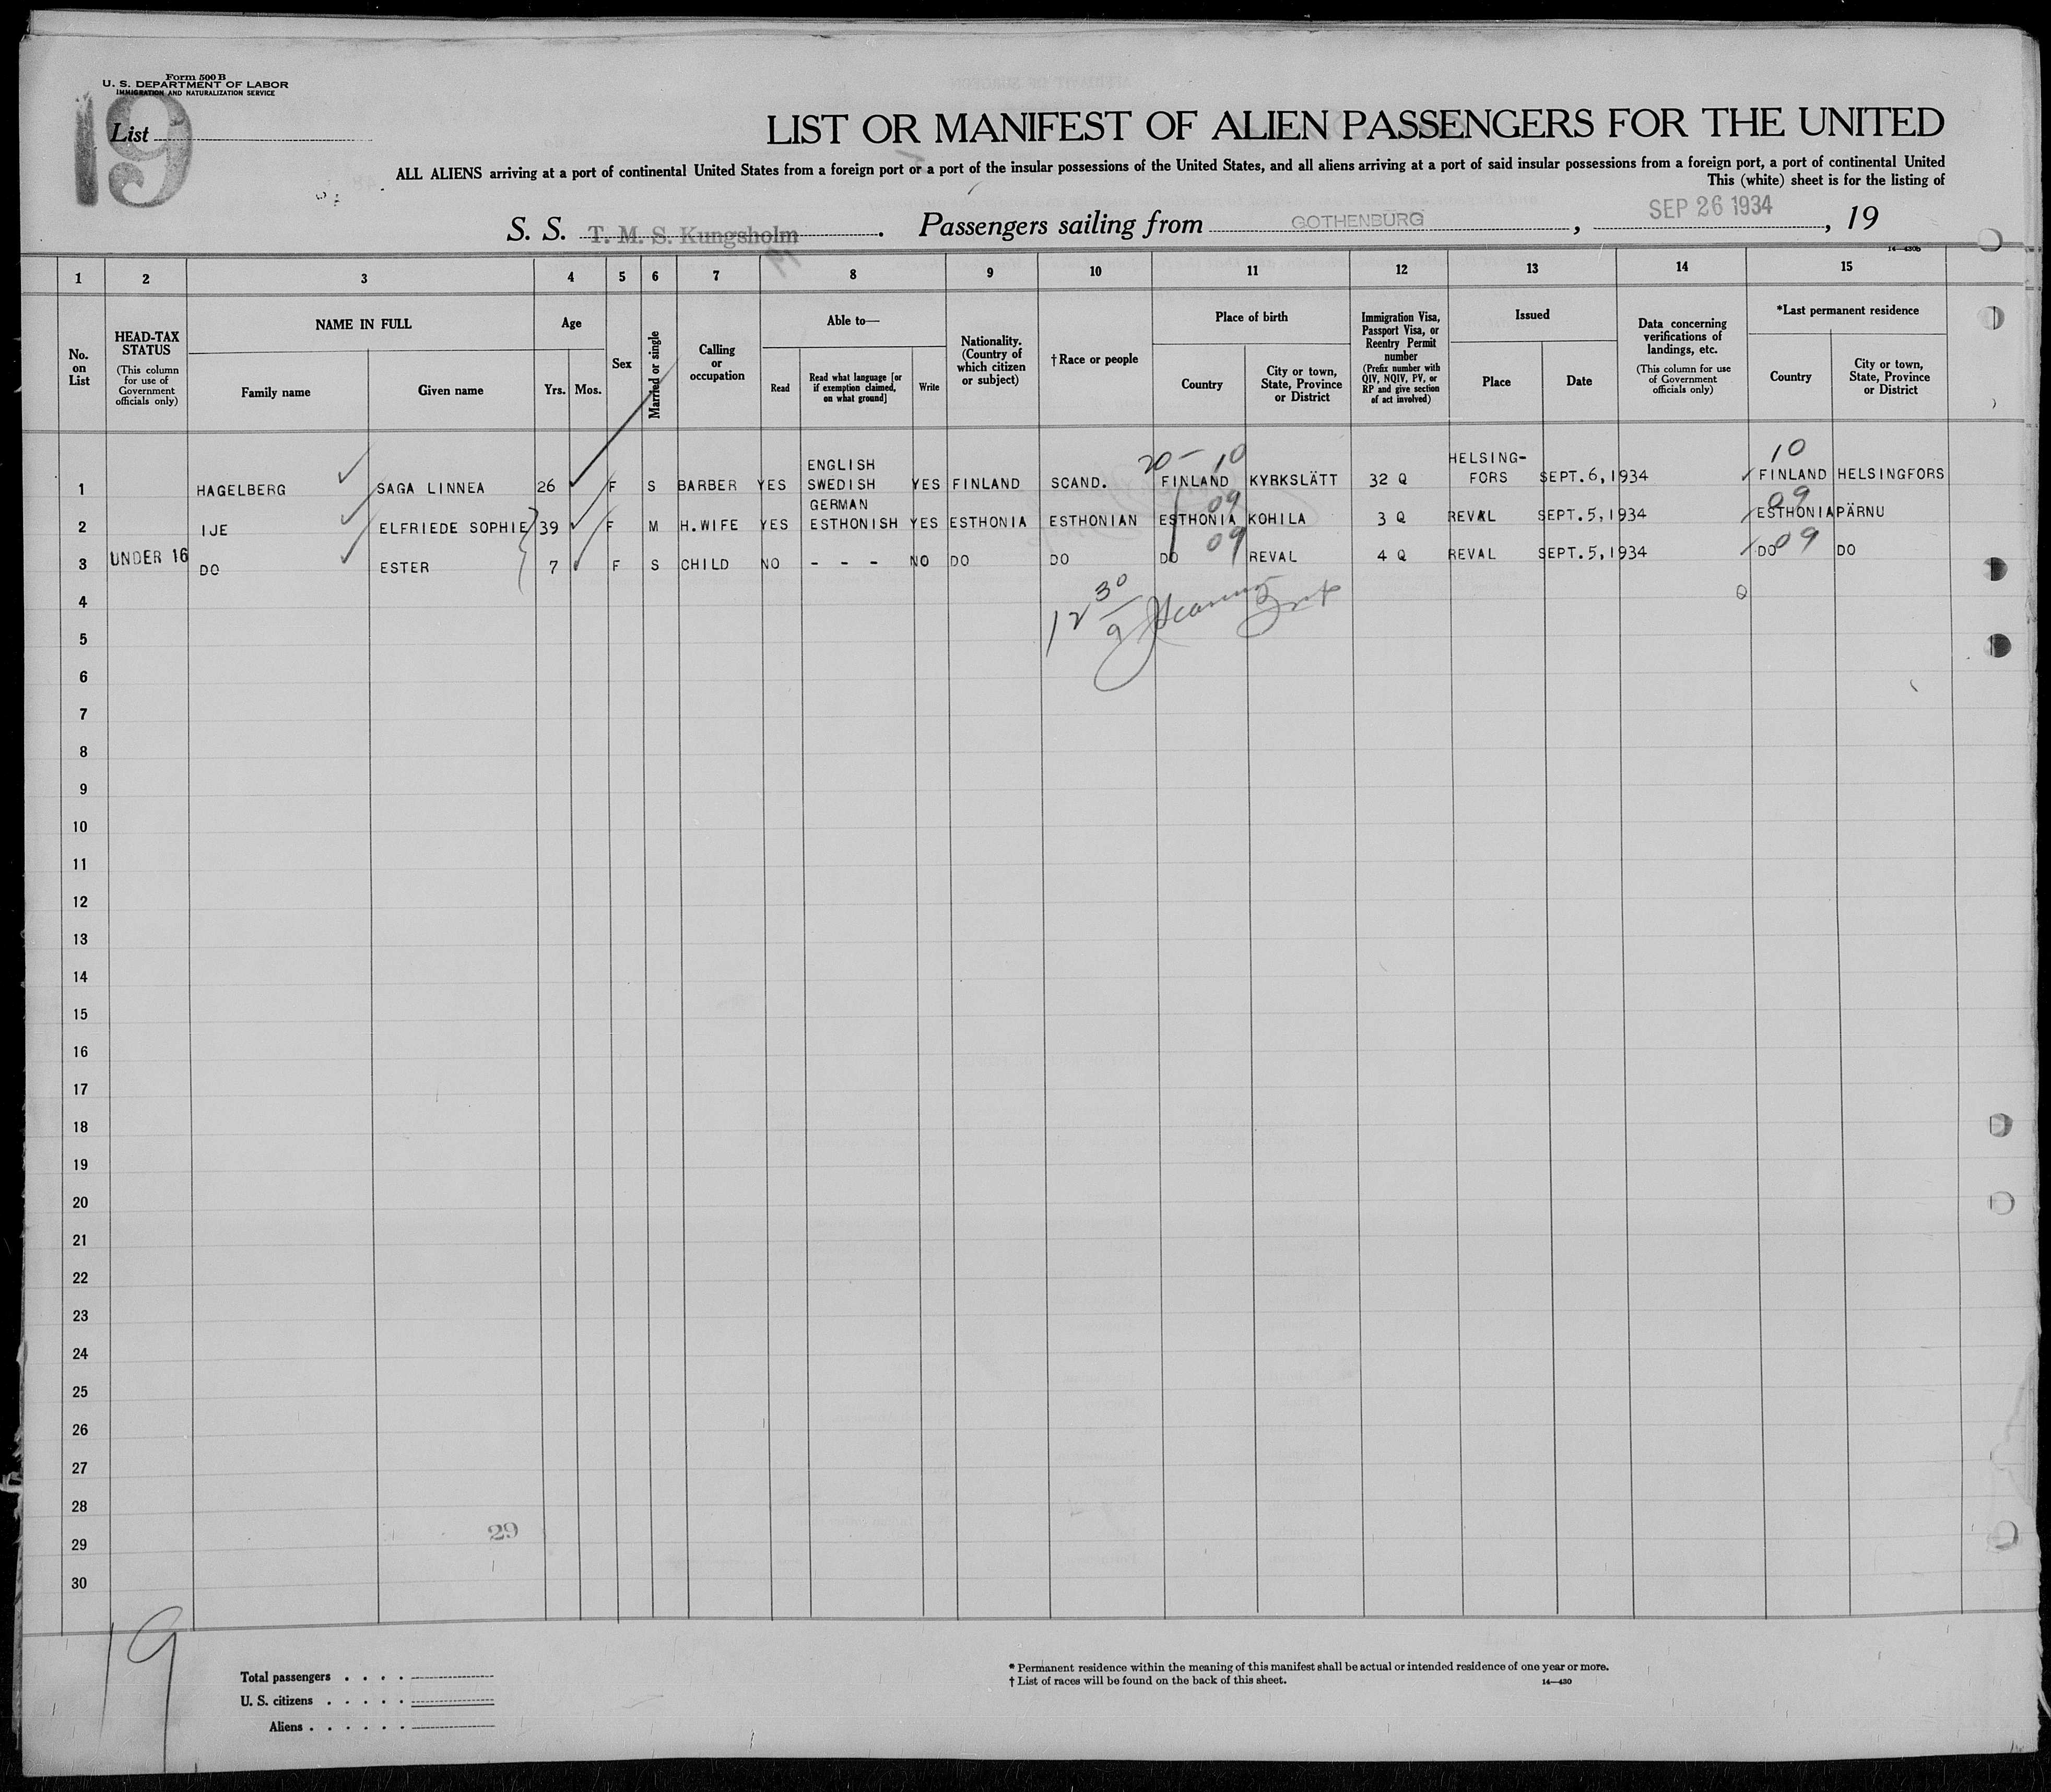 Form 500 B
U. S. DEPARTMENT OF LABOR
IMMIGRATION AND NATURALIZATION SERVICE
List 19
LIST OR MANIFEST OF ALIEN PASSENGERS FOR THE UNITED
ALL ALIENS arriving at a port of continental United States from a foreign port or a port of the insular possessions of the United States, and all aliens arriving at a port of said insular possessions from a foreign port, a port of continental United
This (white) sheet is for the listing of
S. S. T. M. S. Kungsholm. Passengers sailing from GOTHENBURG, SEP 26 1934, 19
14—430b
1 2 3 4 5 6 7 8 9 10 11 12 13 14 15
No. on List
HEAD-TAX STATUS (This column for use of Government officials only)
NAME IN FULL
Family name
Given name
Age
Yrs. Mos.
Sex
Married or single
Calling or occupation
Able to—
Read
Read what language [or if exemption claimed, on what ground]
Write
Nationality. (Country of which citizen or subject)
†Race or people
Place of birth
Country
City or town, State, Province or District
Immigration Visa, Passport Visa, or Reentry Permit number (Prefix number with QIV, NQIV, PV, or RP and give section of act involved)
Issued
Place
Date
Data concerning verifications of landings, etc. (This column for use of Government officials only)
*Last permanent residence
Country
City or town, State, Province or District
20 - 10 10
1 HAGELBERG SAGA LINNEA 26 F S BARBER YES ENGLISH SWEDISH YES FINLAND SCAND. FINLAND KYRKSLÄTT 32 Q HELSING-FORS SEPT.6,1934 FINLAND HELSINGFORS
09 09
2 IJE ELFRIEDE SOPHIE 39 F M H.WIFE YES GERMAN ESTHONISH YES ESTHONIA ESTHONIAN ESTHONIA KOHILA 3 Q REVAL SEPT.5,1934 ESTHONIA PÄRNU
09 09
3 UNDER 16 DO ESTER 7 F S CHILD NO - - - NO DO DO DO REVAL 4 Q REVAL SEPT.5,1934 DO DO
4
5
6
7
8
9
10
11
12
13
14
15
16
17
18
19
20
21
22
23
24
25
26
27
28
29
29
30
19
Total passengers
U. S. citizens
Aliens
* Permanent residence within the meaning of this manifest shall be actual or intended residence of one year or more.
† List of races will be found on the back of this sheet.
14—430